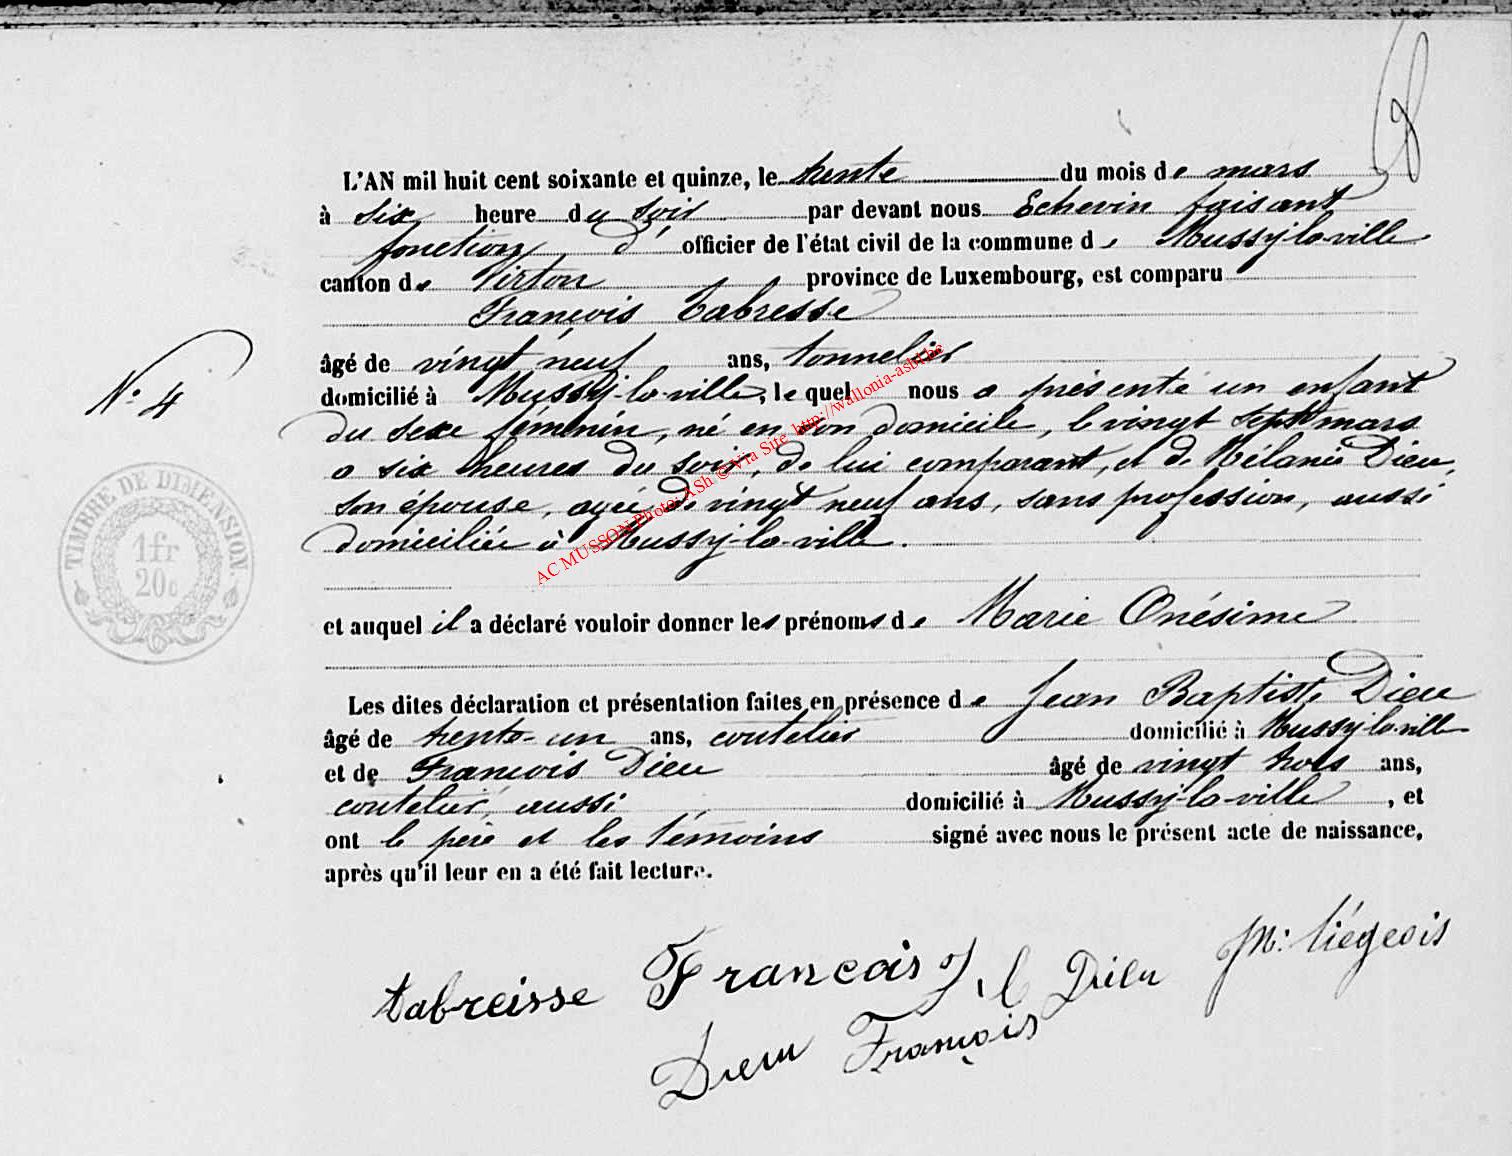 L'AN mil huit cent soixante et quinze, le trente du mois de mars
à six heure du soir par devant nous Echevin faisant
fonction d' officier de l'état civil de la commune de Mussy-la-ville
canton de Virton province de Luxembourg, est comparu
François Tabresse
âgé de vingt neuf ans, tonnelier
domicilié à Mussy-la-ville, le quel nous a présenté un enfant
du sexe féminin, né en son domicile, le vingt sept mars
a six heures du soir, de lui comparant, et de Mélanie Dieu,
son épouse, agée de vingt neuf ans, sans profession, aussi
domiciliée à Mussy-la-ville.
et auquel il a déclaré vouloir donner les prénoms de Marie Onésime
Les dites déclaration et présentation faites en présence de Jean Baptiste Dieu
âgé de trente-un ans, coutelier domicilié à Mussy-la-ville
et de François Dieu âgé de vingt trois ans,
coutelier, aussi domicilié à Mussy-la-ville, et
ont le père et les témoins signé avec nous le présent acte de naissance,
après qu'il leur en a été fait lecture.
N° 4
TIMBRE DE DIMENSION
1fr
20c
AC MUSSON Photo: ASh © Via Site http://wallonia-asbl.be
tabreisse François Dieu Liégeois
Dieu François